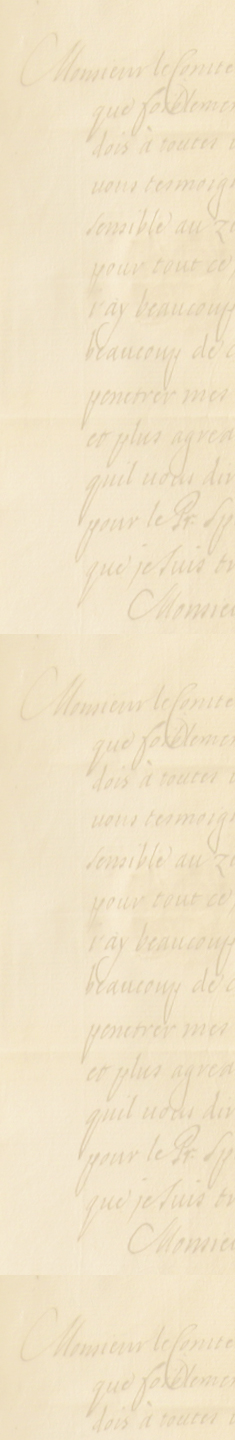 Monsieur le Comte
que foiblement
dois à toutes
vous tesmoig
sensible au
pour tout ce
j'ay beaucoup
beaucoup de
penetrer mes
et plus agrea
quil vous dir
pour le Pr. Sp
que je suis tr
Monsie
Monsieur le Comte
que foiblement
dois à toutes
vous tesmoig
sensible au
pour tout ce
j'ay beaucoup
beaucoup de
penetrer mes
et plus agrea
quil vous dir
pour le Pr. Sp
que je suis tr
Monsie
Monsieur le Comte
que foiblement
dois à toutes